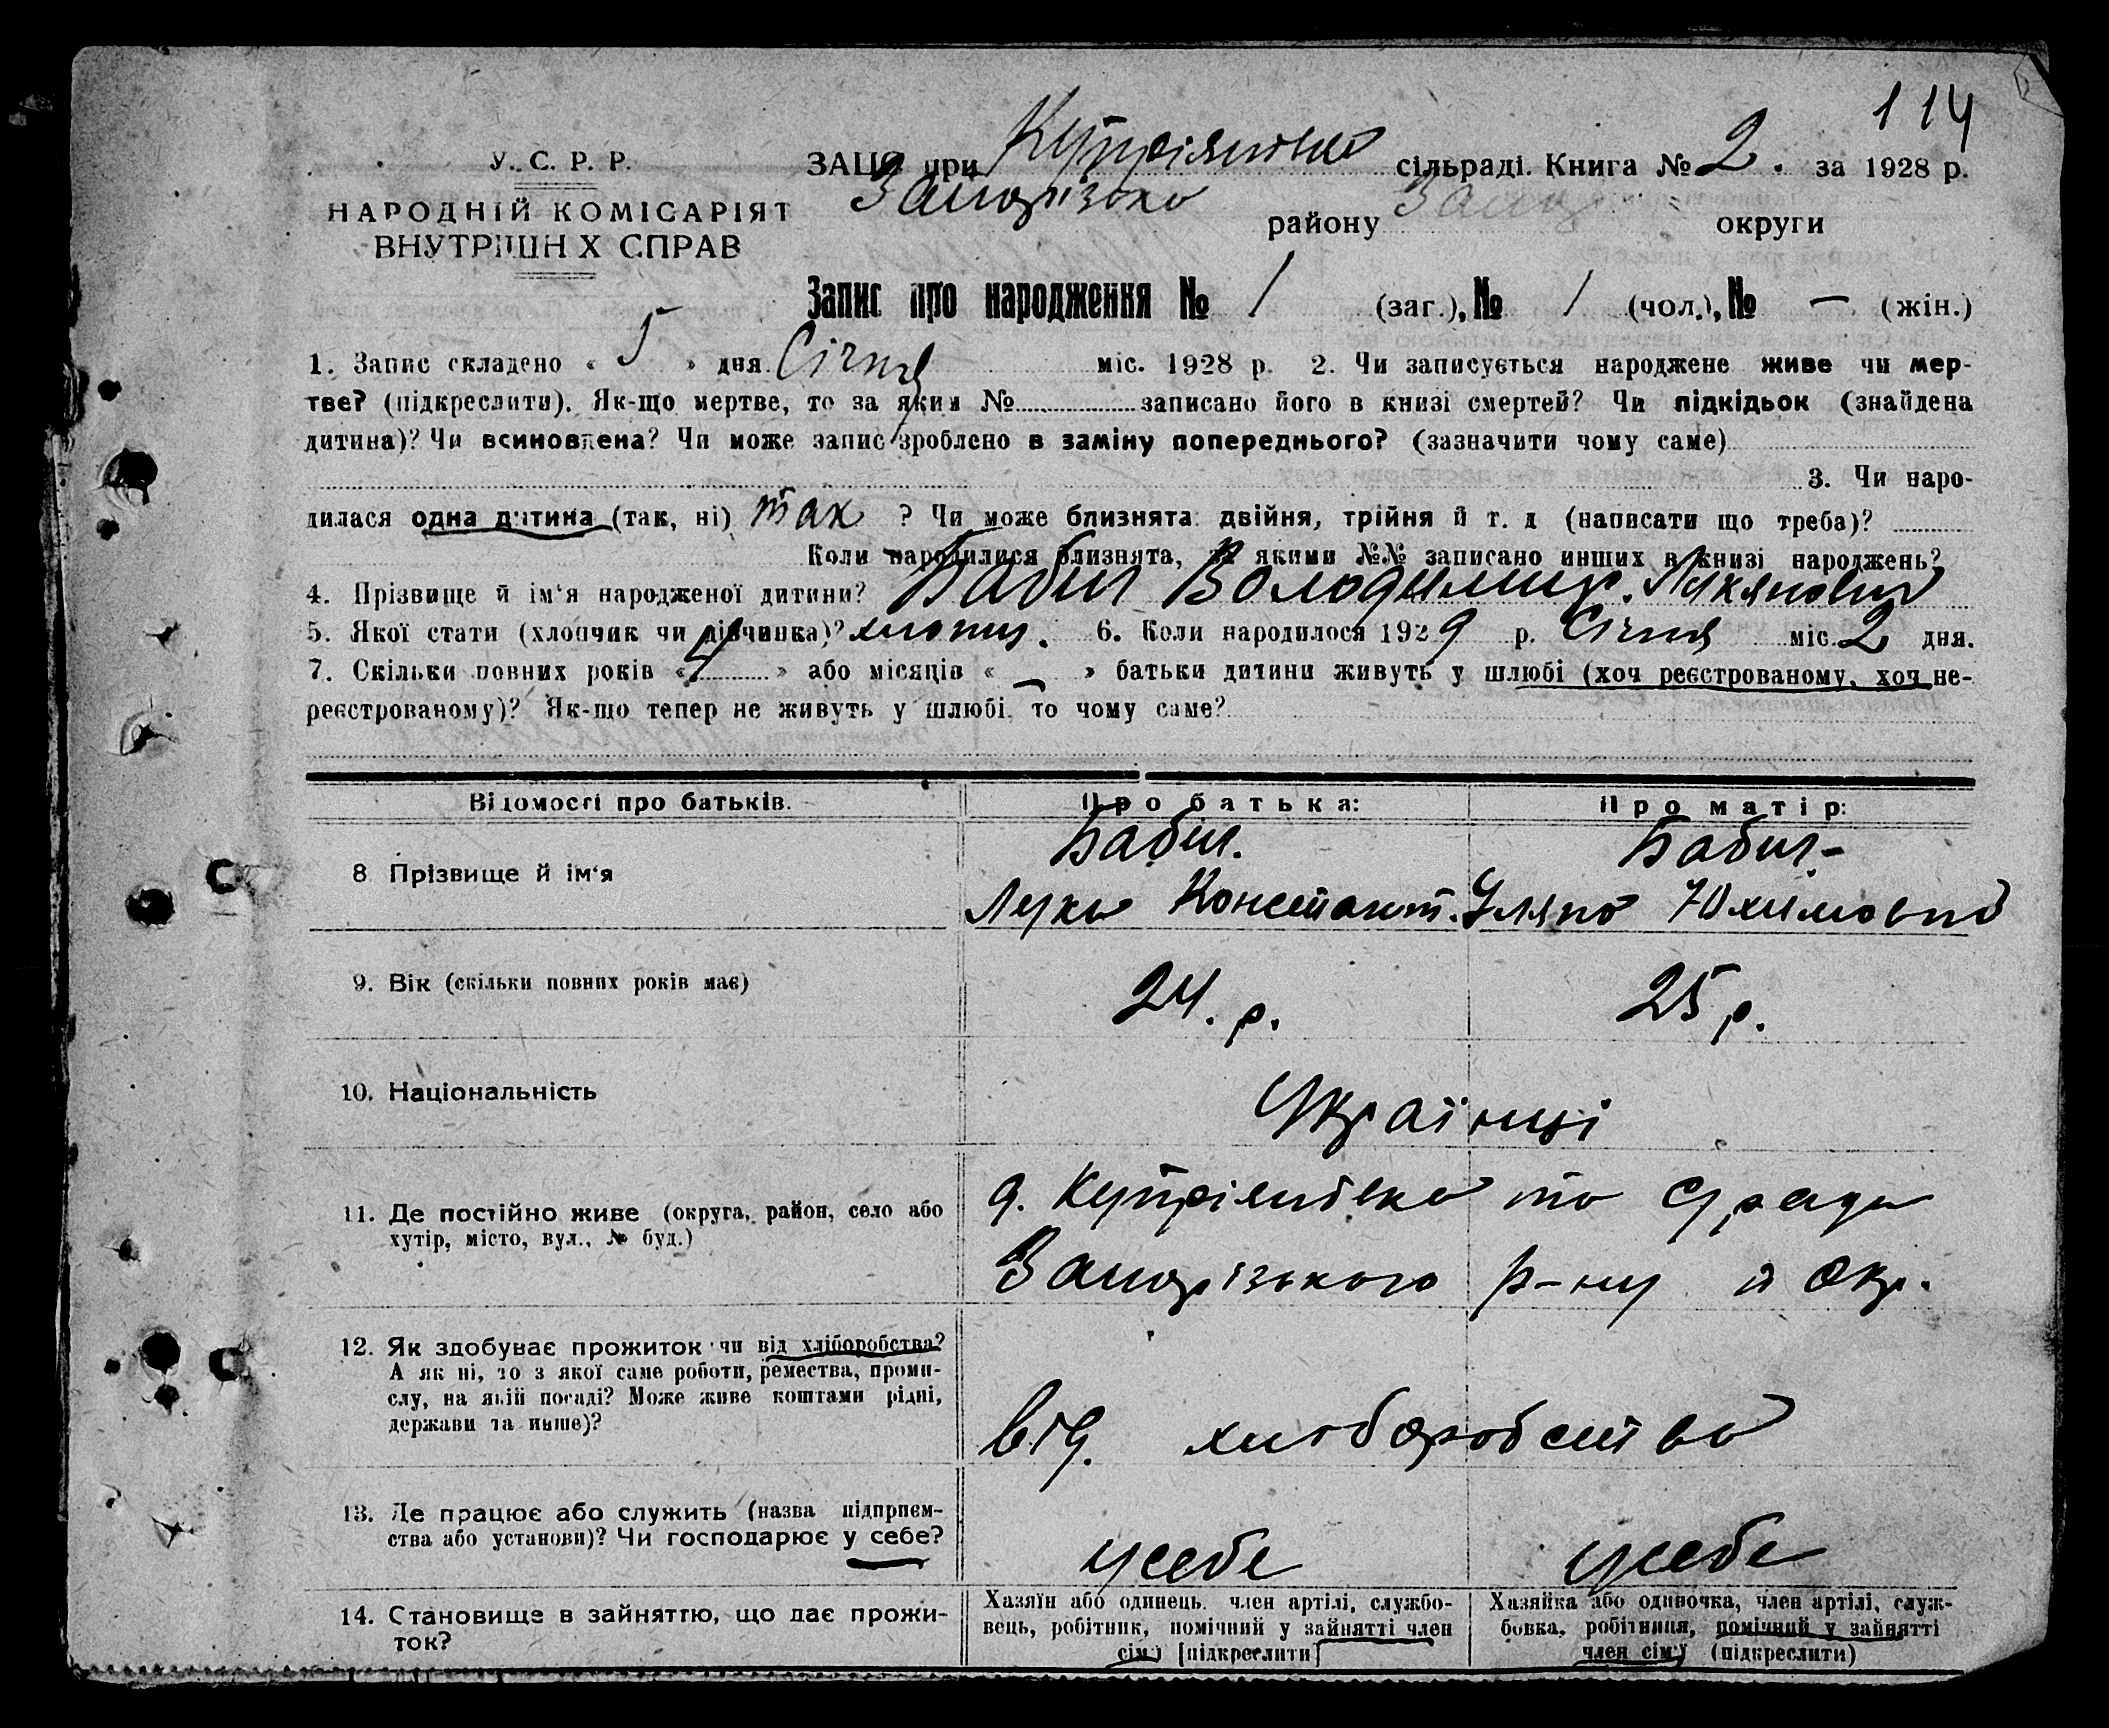 114
У. С. Р. Р.
НАРОДНІЙ КОМІСАРІЯТ
ВНУТРІШН Х СПРАВ
ЗАЦС при Купріянівка сільраді. Книга № 2. за 1928 р.
Запорізько району Запор округи
Запис про народження № 1 (заг.), № 1 (чол.), № — (жін.)
1. Запис складено « 5 » дня Січня міс. 1928 р. 2. Чи записується народжене живе чи мер-
тве? (підкреслити). Як-що мертве, то за яким № записано його в книзі смертей? Чи підкідьок (знайдена
дитина)? Чи всиновлена? Чи може запис зроблено в заміну попереднього? (зазначити чому саме)
3. Чи наро-
дилася одна дитина (так, ні) так ? Чи може близнята: двійня, трійня й т. д (написати що треба)?
Коли народилися близнята, якими №№ записано инших в книзі народжень?
4. Прізвище й ім'я народженої дитини? Бабич Володимир. Лукянович
5. Якої стати (хлопчик чи дівчинка)? хлопчи. 6. Коли народилося 1929 р. Січня міс. 2 дня.
7. Скільки повних років « 4 » або місяців « — » батьки дитини живуть у шлюбі (хоч реєстрованому, хоч не-
реєстрованому)? Як-що тепер не живуть у шлюбі, то чому саме?
Відомості про батьків. Про батька: Про матір:
8 Прізвище й ім'я Бабич. Лука Констант. Бабич- Уляна Юхимовна
9. Вік (скільки повних років має) 24. р. 25 р.
10. Національність Українці
11. Де постійно живе (округа, район, село або
хутір, місто, вул., № буд.)
д. Купріянівка то с/ради
Запорізького р-ну й Окр.
12. Як здобуває прожиток чи від хліборобства?
А як ні, то з якої саме роботи, ремества, проми-
слу, на якій посаді? Може живе коштами рідні,
держави та инше)?
від. хліборобства
13. Де працює або служить (назва підприєм-
ства або установи)? Чи господарює у себе?
усебе усебе
14. Становище в зайняттю, що дає прожи-
ток?
Хазяїн або одинець, член артілі, службо-
вець, робітник, помічний у зайнятті член
сім'ї [підкреслити]
Хазяйка або одиночка, член артілі, служ-
бовка, робітниця, помічний у зайнятті
член сім'ї (підкреслити)